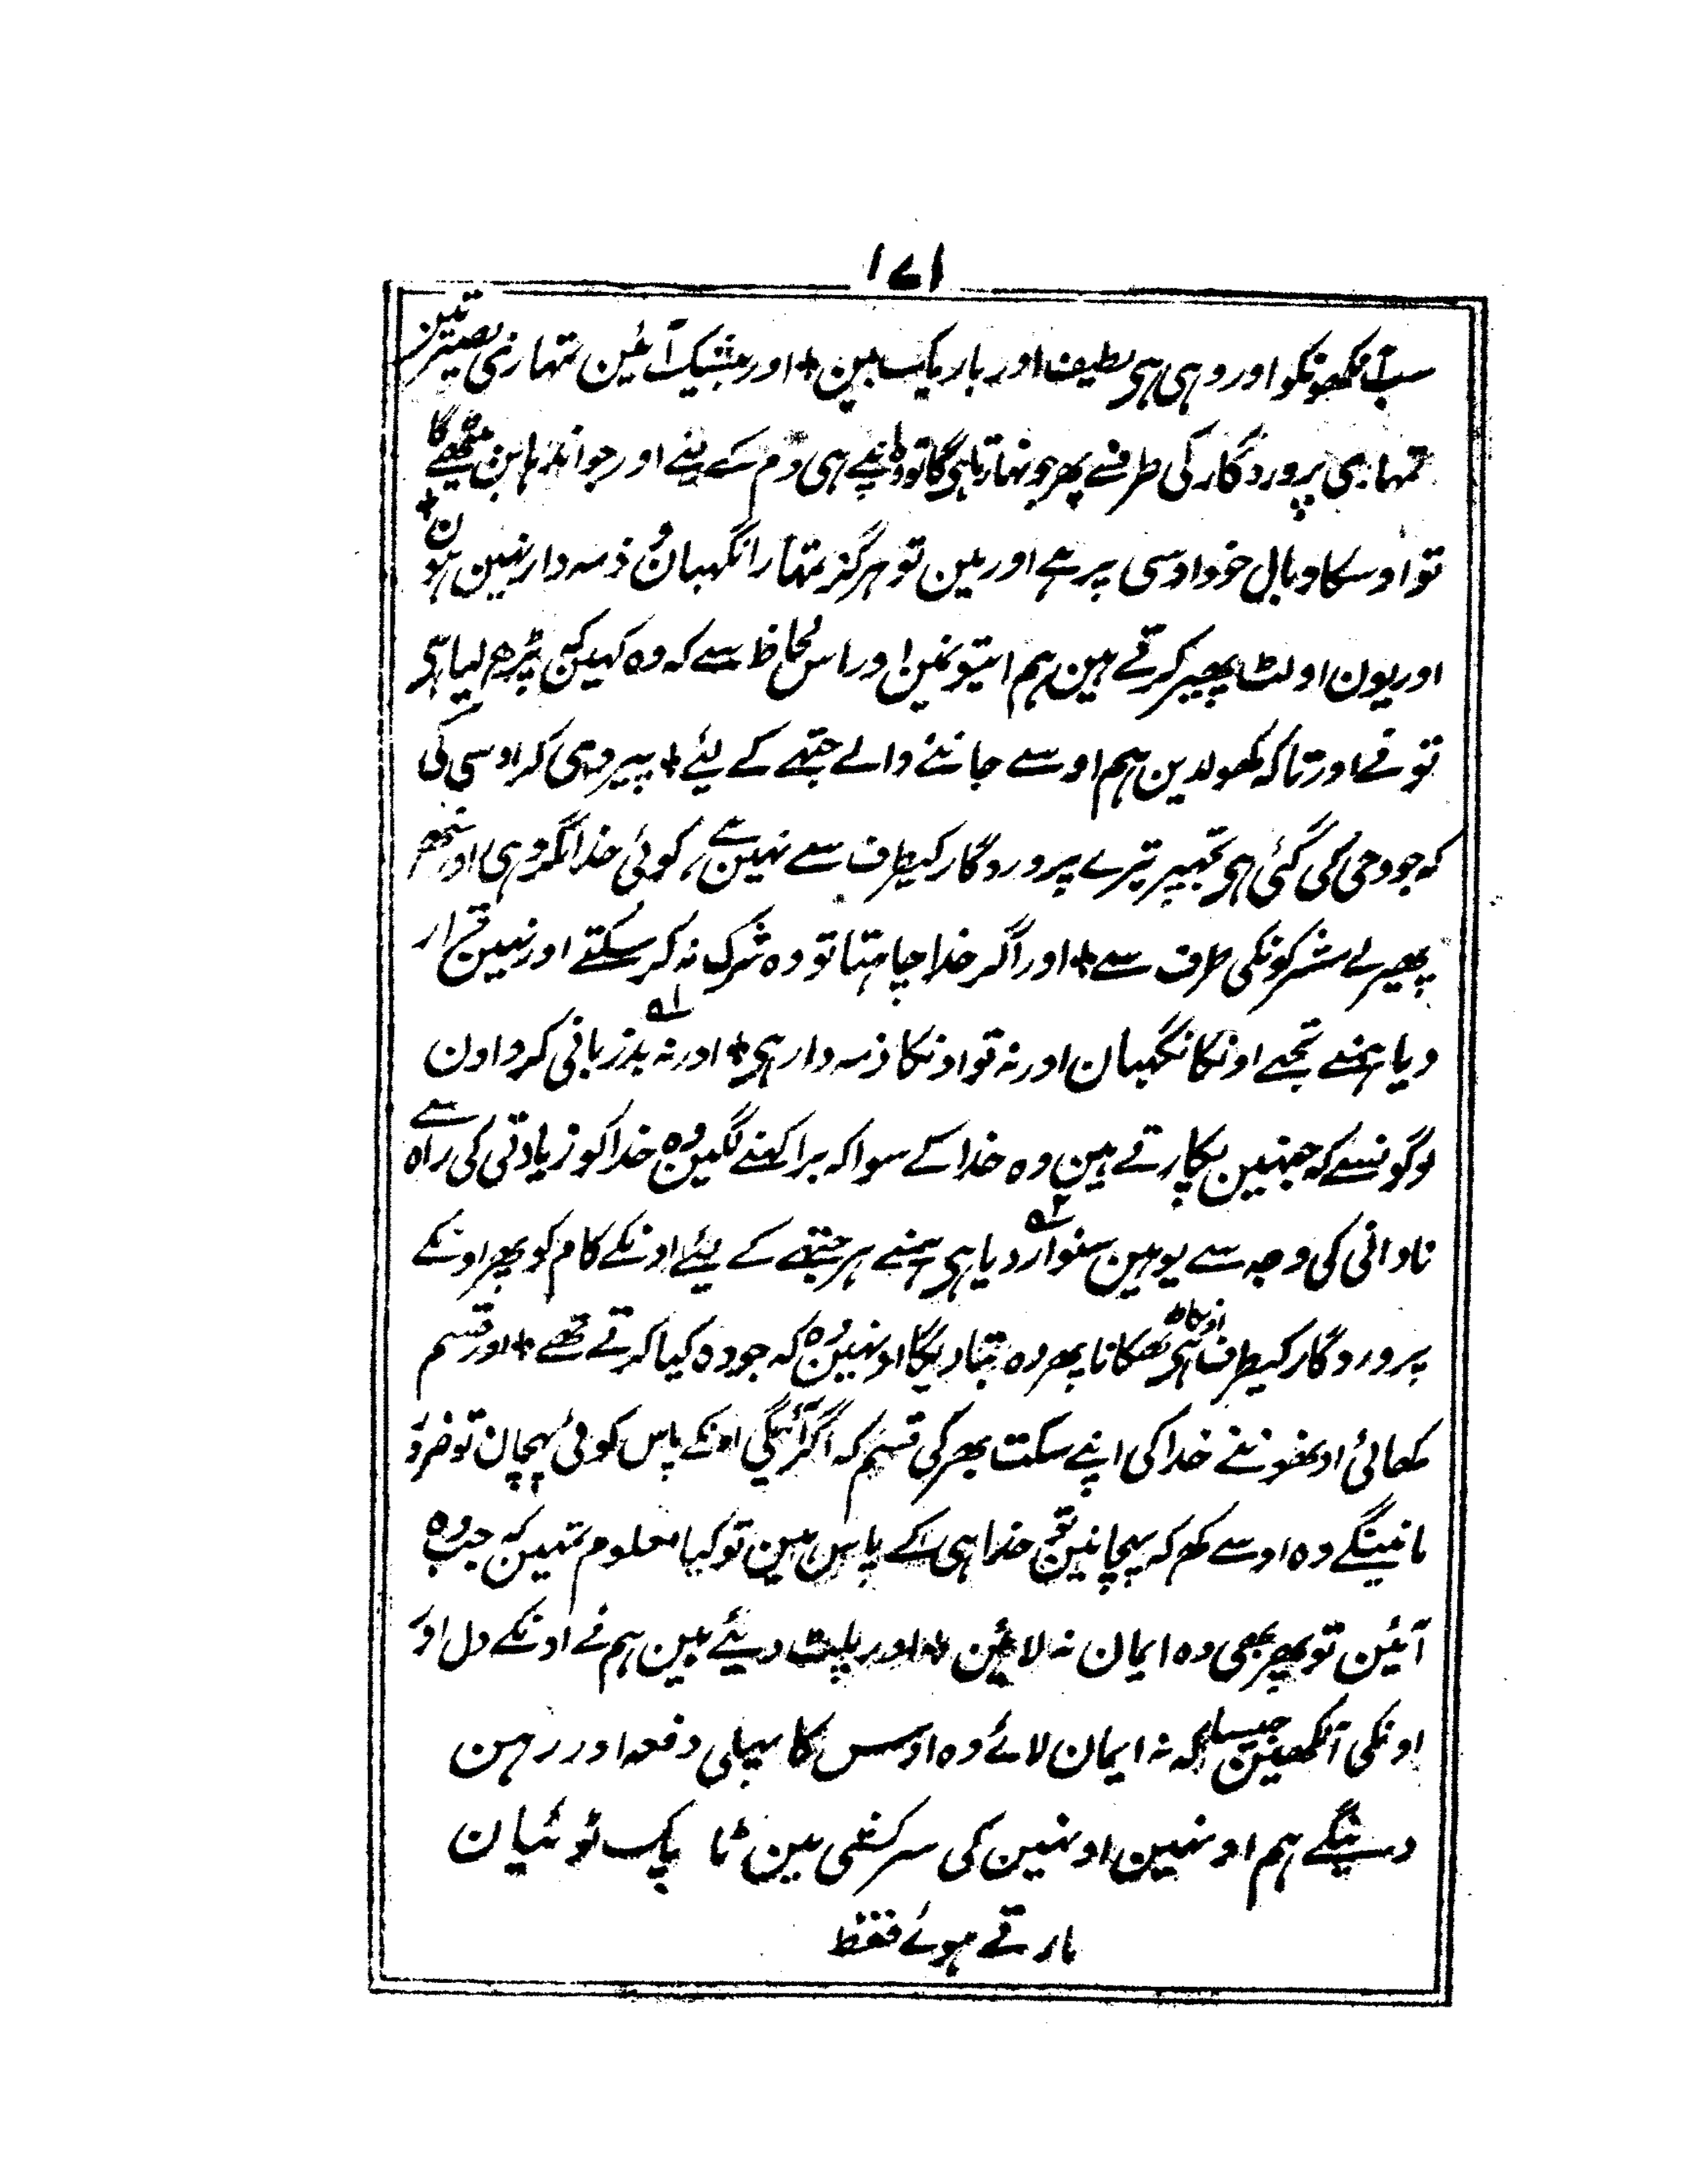 ۱۷۱
سب آنکھونکو اور وہی ہی لطیف اور باریک بین + اور بیشیک آئین تمہاری بصیرتین
تمہاری پروردگار کی طرفنے پھر جو نہارتا ہی گا تو وہ اپنے ہی دم کے لئے اور جو اندھا بن بیٹھے گا
تو اوسکا وبال خود اوسی پر ہے اور مین تو ہرگز تمہارا نگہبان و ذمہ دار نہین ہون +
اور یون اولٹ پھیر کرتے ہین ہم ایتونمین اور اس لحاظ سے کہ وہ کہین کہ پڑھ لیا ہی
تونے اور تاکہ کھولدین ہم اوسے جاننے والے جتھے کے لئے + پیروی کر اوسی کی
کہ جو وحی کی گئی ہی تجھپر تیرے پروردگار کیطرف سے نہین ہے کوئی خدا مگر وہی اور منھ
پھیر لے مشرکونکی طرف سے + اور اگر خدا چاہتا تو وہ شرک نہ کر سکتے اور نہین قرار
دیا ہمنے تجھے اونکا نگہبان اور نہ تو اونکا ذمہ دار ہی + اور نہ بدزبانی کرو اون
لوگونسے کہ جنہین پکارتے ہین وہ خدا کے سوا کہ برا کہنے لگین وہ خدا کو زیادتی کی راہ سے
نادانی کی وجہ سے یوہین سنوار دیا ہی ہمنے ہر جتھے کے لئے اونکے کام کو پھر اونکے
پروردگار کیطرف ہی اونکا ٹھکانا پھر وہ بتا دیگا اونہین وہ کہ جو وہ کیا کرتے تھے + اور قسم
کھائی اونھونے خدا کی اپنے سکت بھر کی قسم کہ اگر آئیگی اونکے پاس کوئی پہچان تو ضرور
مانینگے وہ اوسے کہہ کہ پہچانین تو خدا ہی کے پاس ہین تو کیا معلوم تمہین کہ جب وہ
آئین تو پھر بھی وہ ایمان نہ لائین + اور پلٹ دیئے ہین ہم نے اونکے دل اور
اونکی آنکھین جیسا کہ نہ ایمان لائے وہ اوس کا پہلی دفعہ اور رہن
دینگے ہم اونہین اونہین کی سرکشی مین ٹا پک ٹوئیان
مارتے ہوئے فقط